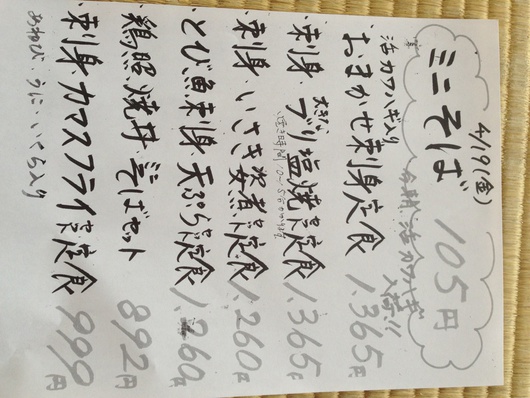 4/19(金)
ミニそば 105円
活カワハギ入荷!!
活カワハギ入り
おまかせ刺身定食 1,365円
刺身・大きなブリ塩焼き定食 1,365円
刺身・いさき姿煮定食 1,260円
とび魚刺身・天ぷら定食 1,260円
鶏照焼丼・ミニそばセット 892円
刺身・カマスフライ定食 999円
あわび・うに・いくら入り